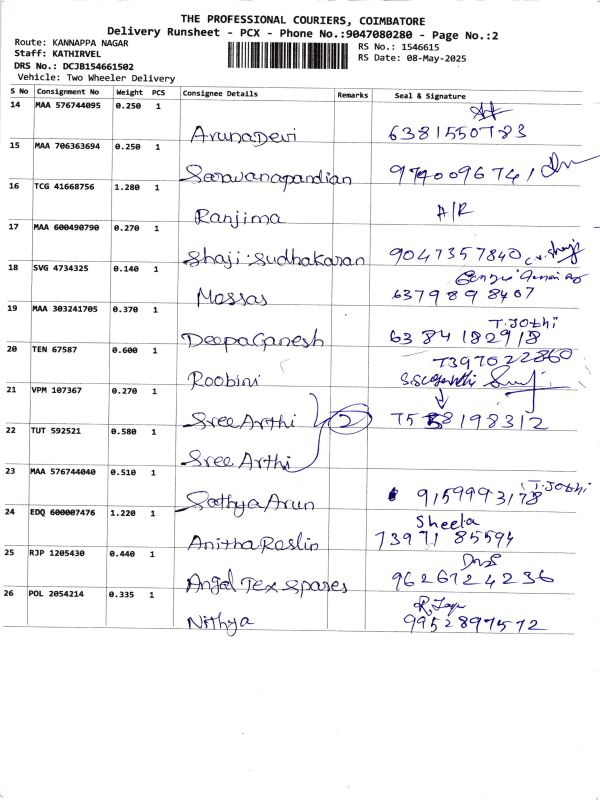 THE PROFESSIONAL COURIERS, COIMBATORE
Delivery Runsheet - PCX - Phone No.:9047080280 - Page No.:2
Route: KANNAPPA NAGAR
Staff: KATHIRVEL
DRS No.: DCJB154661502
Vehicle: Two Wheeler Delivery
RS No.: 1546615
RS Date: 08-May-2025
S No Consignment No Weight PCS Consignee Details Remarks Seal & Signature
14 MAA 576744095 0.250 1
ArunaDevi 6381550783
15 MAA 706363694 0.250 1
Saravanapandian 9790096741
16 TCG 41668756 1.280 1
Ranjima A/R
17 MAA 600490790 0.270 1
Shaji.Sudhakaran 9047357840
18 SVG 4734325 0.140 1
Massas 6379898407
19 MAA 303241705 0.370 1
T.Jothi
DeepaGanesh 6384182918
20 TEN 67587 0.600 1
7397022860
Roobini
21 VPM 107367 0.270 1
Sree Arthi 2 7558198312
22 TUT 592521 0.580 1
Sree Arthi
23 MAA 576744040 0.510 1
T.Jothi
Sathya Arun 9159993178
24 EDQ 600007476 1.220 1
Sheela
Anitha Roslin 7397185594
25 RJP 1205430 0.440 1
Angal Tex Spares 9626724236
26 POL 2054214 0.335 1
Nithya 9952897572